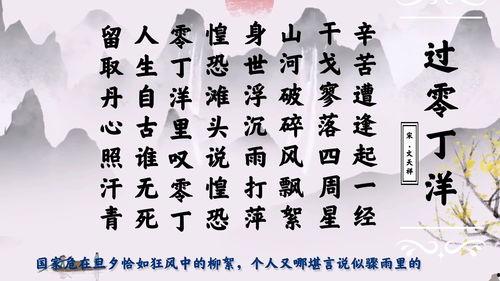 过零丁洋
宋·文天祥
辛苦遭逢起一经
干戈寥落四周星
山河破碎风飘絮
身世浮沉雨打萍
惶恐滩头说惶恐
零丁洋里叹零丁
人生自古谁无死
留取丹心照汗青
国家危在旦夕恰如狂风中的柳絮，个人又哪堪言说似骤雨里的